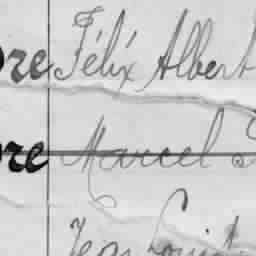 re Félix Albert
re Marcel
Jean Louis